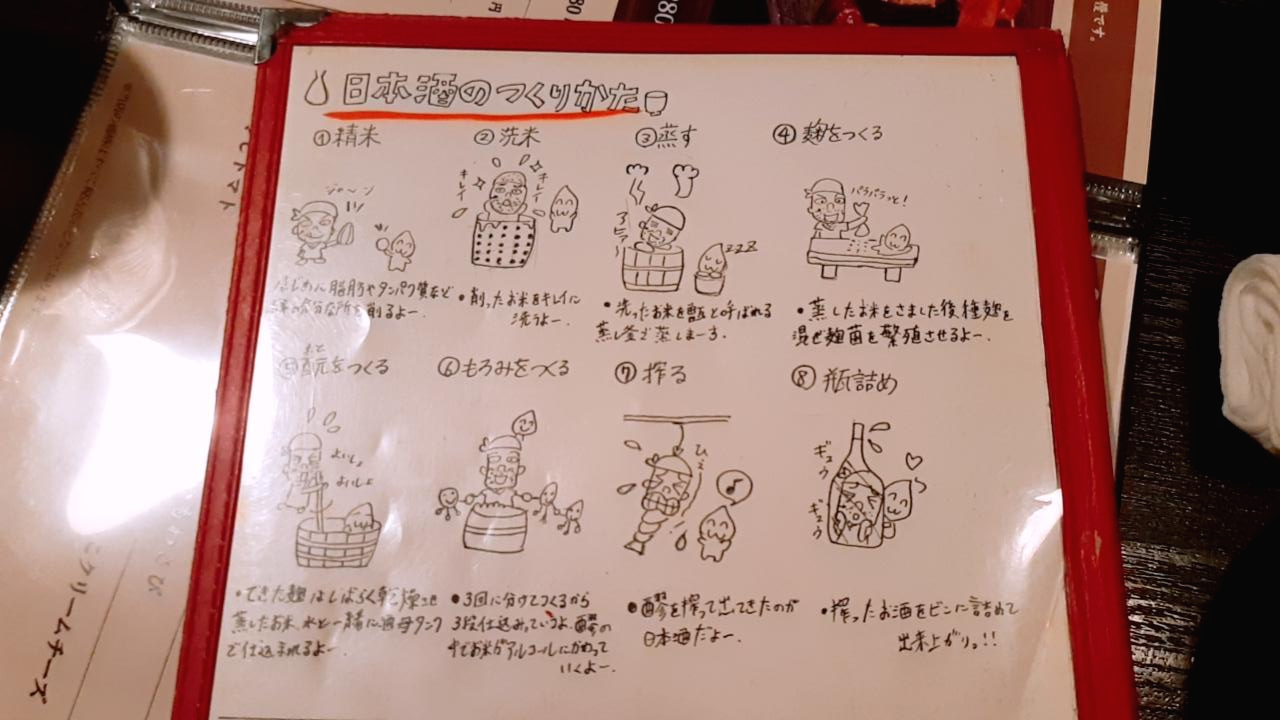 日本酒のつくりかた
①精米
②洗米
③蒸す
④麹をつくる
キレイ
キレイ
アヒァ〜
zzz
パラパラっと!
はじめに脂肪やタンパク質など
余分な所を削るよー.
・削ったお米をキレイに
洗うよー.
・洗ったお米を甑と呼ばれる
蒸し釜で蒸しまーす.
・蒸したお米をさました後種麹を
混ぜ麹菌を繁殖させるよー.
もと
⑤酛をつくる
⑥もろみをつくる
⑦搾る
⑧瓶詰め
よいしょ
よいしょ
ひぇ
ギュウ
ギュウ
・できた麹はしばらく乾燥させ
蒸したお米、水と一緒に酒母タンク
で仕込まれるよー.
・3回に分けてつくるから
3段仕込みっていうよ.醪の
中でお米がアルコールにかわって
いくよー.
・醪を搾って出てきたのが
日本酒だよー.
・搾ったお酒をビンに詰めて
出来上がりっ!!
トマト
クリームチーズ
円
80
80
です。